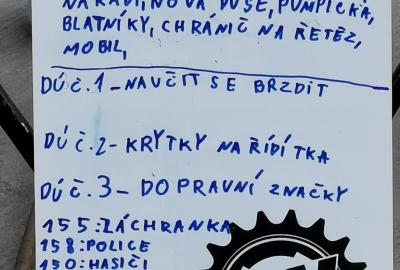 NÁŘADÍ, NOVÁ DUŠE, PUMPIČKA,
BLATNÍKY, CHRÁNIČ NA ŘETĚZ,
MOBIL,
DÚ Č.1 - NAUČIT SE BRZDIT
DÚ Č.2 - KRYTKY NA ŘÍDÍTKA
DÚ Č.3 - DOPRAVNÍ ZNAČKY
155: ZÁCHRANKA
158: POLICE
150: HASIČI